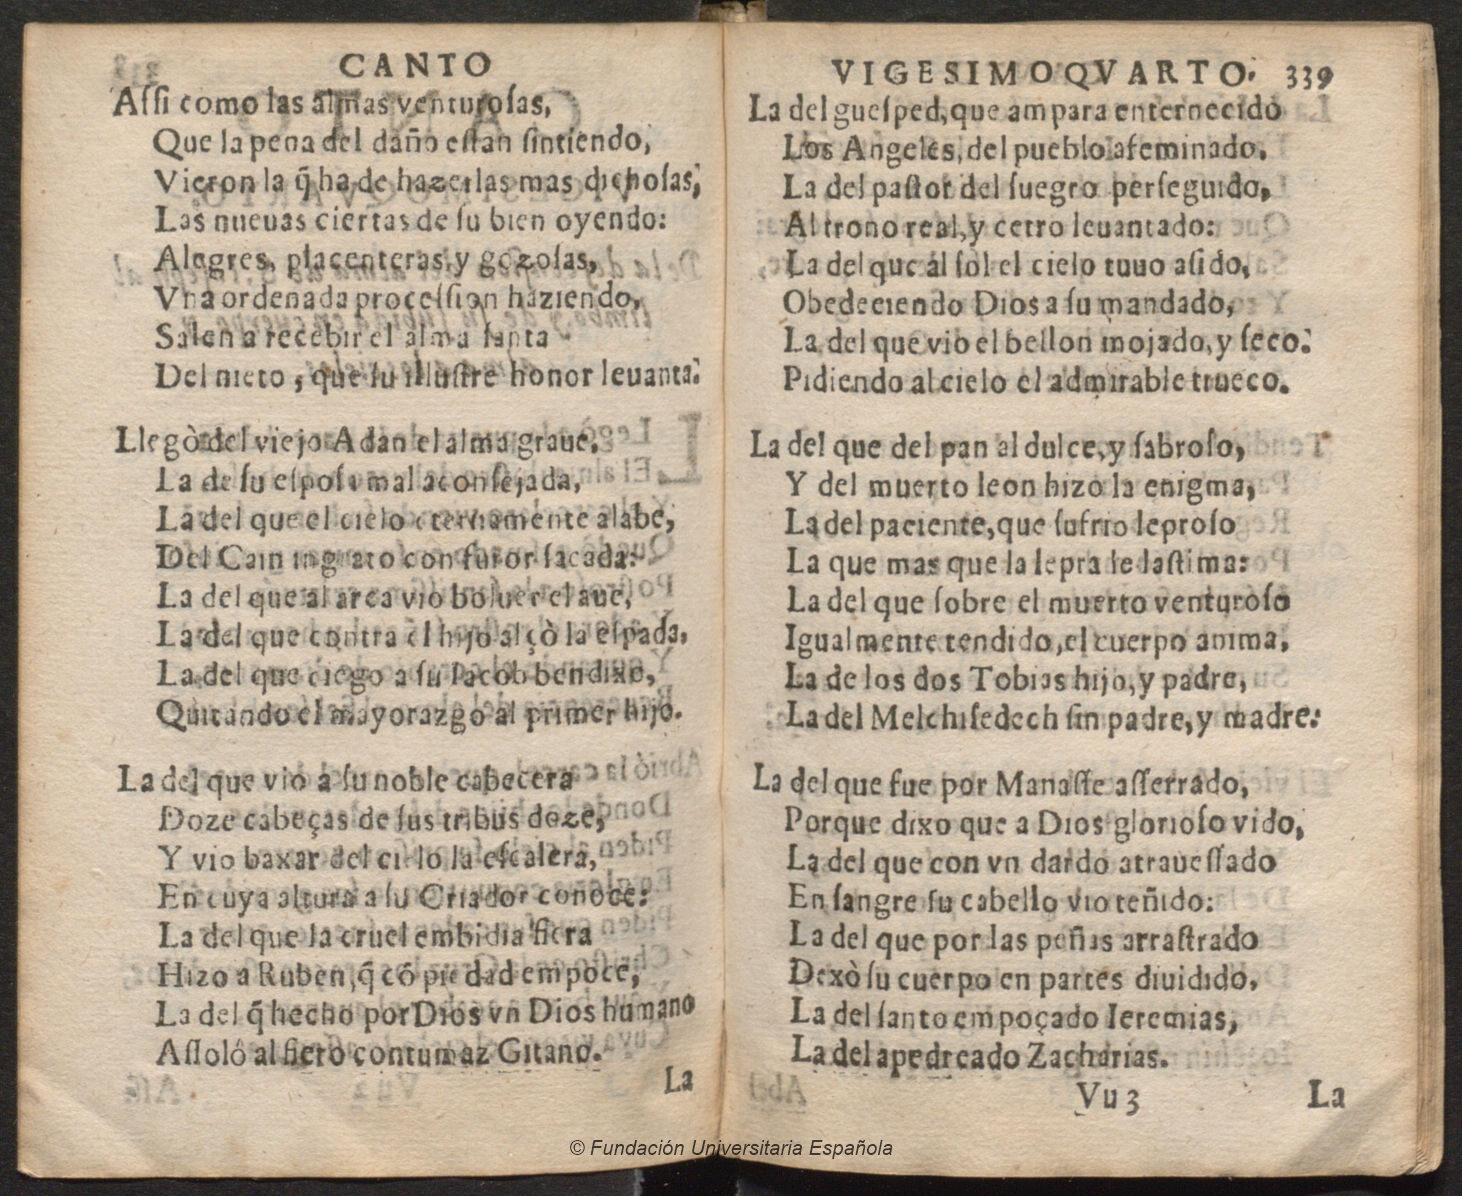 CANTO
Aſſi como las almas venturoſas,
Que la pena del daño eſtan ſintiendo,
Vieron la q̃ ha de hazerlas mas dichoſas,
Las nueuas ciertas de ſu bien oyendo:
Alegres, placenteras, y gozoſas,
Vna ordenada proceſſion haziendo,
Salen a recebir el alma ſanta
Del nieto, que ſu illuſtre honor leuanta.
Llegò del viejo Adan el alma graue,
La de ſu eſpoſa mal aconſejada,
La del que el cielo eternamente alabe,
Del Cain ingrato con furor ſacada:
La del que al arca vio boluer el aue,
La del que contra el hijo alçò la eſpada,
La del que ciego a ſu Iacob bendixo,
Quitando el mayorazgo al primer hijo.
La del que vio a ſu noble cabecera
Doze cabeças de ſus tribus doze,
Y vio baxar del cielo la eſcalera,
En cuya altura a ſu Criador conoce:
La del que la cruel embidia fiera
Hizo a Ruben, q̃ cõ piedad empoce,
La del q̃ hecho por Dios vn Dios humano
Aſſolò al fiero contumaz Gitano.
La
VIGESIMOQVARTO. 339
La del gueſped, que ampara enternecido
Los Angeles, del pueblo afeminado,
La del paſtor del ſuegro perſeguido,
Al trono real, y cetro leuantado:
La del que al ſol el cielo tuuo aſido,
Obedeciendo Dios a ſu mandado,
La del que vio el bellon mojado, y ſeco,
Pidiendo al cielo el admirable trueco.
La del que del pan al dulce, y ſabroſo,
Y del muerto leon hizo la enigma,
La del paciente, que ſufrio leproſo
La que mas que la lepra le laſtima:
La del que ſobre el muerto venturoſo
Igualmente tendido, el cuerpo anima,
La de los dos Tobias hijo, y padre,
La del Melchiſedech ſin padre, y madre:
La del que fue por Manaſſe aſſerrado,
Porque dixo que a Dios glorioſo vido,
La del que con vn dardo atraueſſado
En ſangre ſu cabello vio teñido:
La del que por las peñas arraſtrado
Dexò ſu cuerpo en partes diuidido,
La del ſanto empoçado Ieremias,
La del apedreado Zacharias.
Vu 3
La
© Fundación Universitaria Española